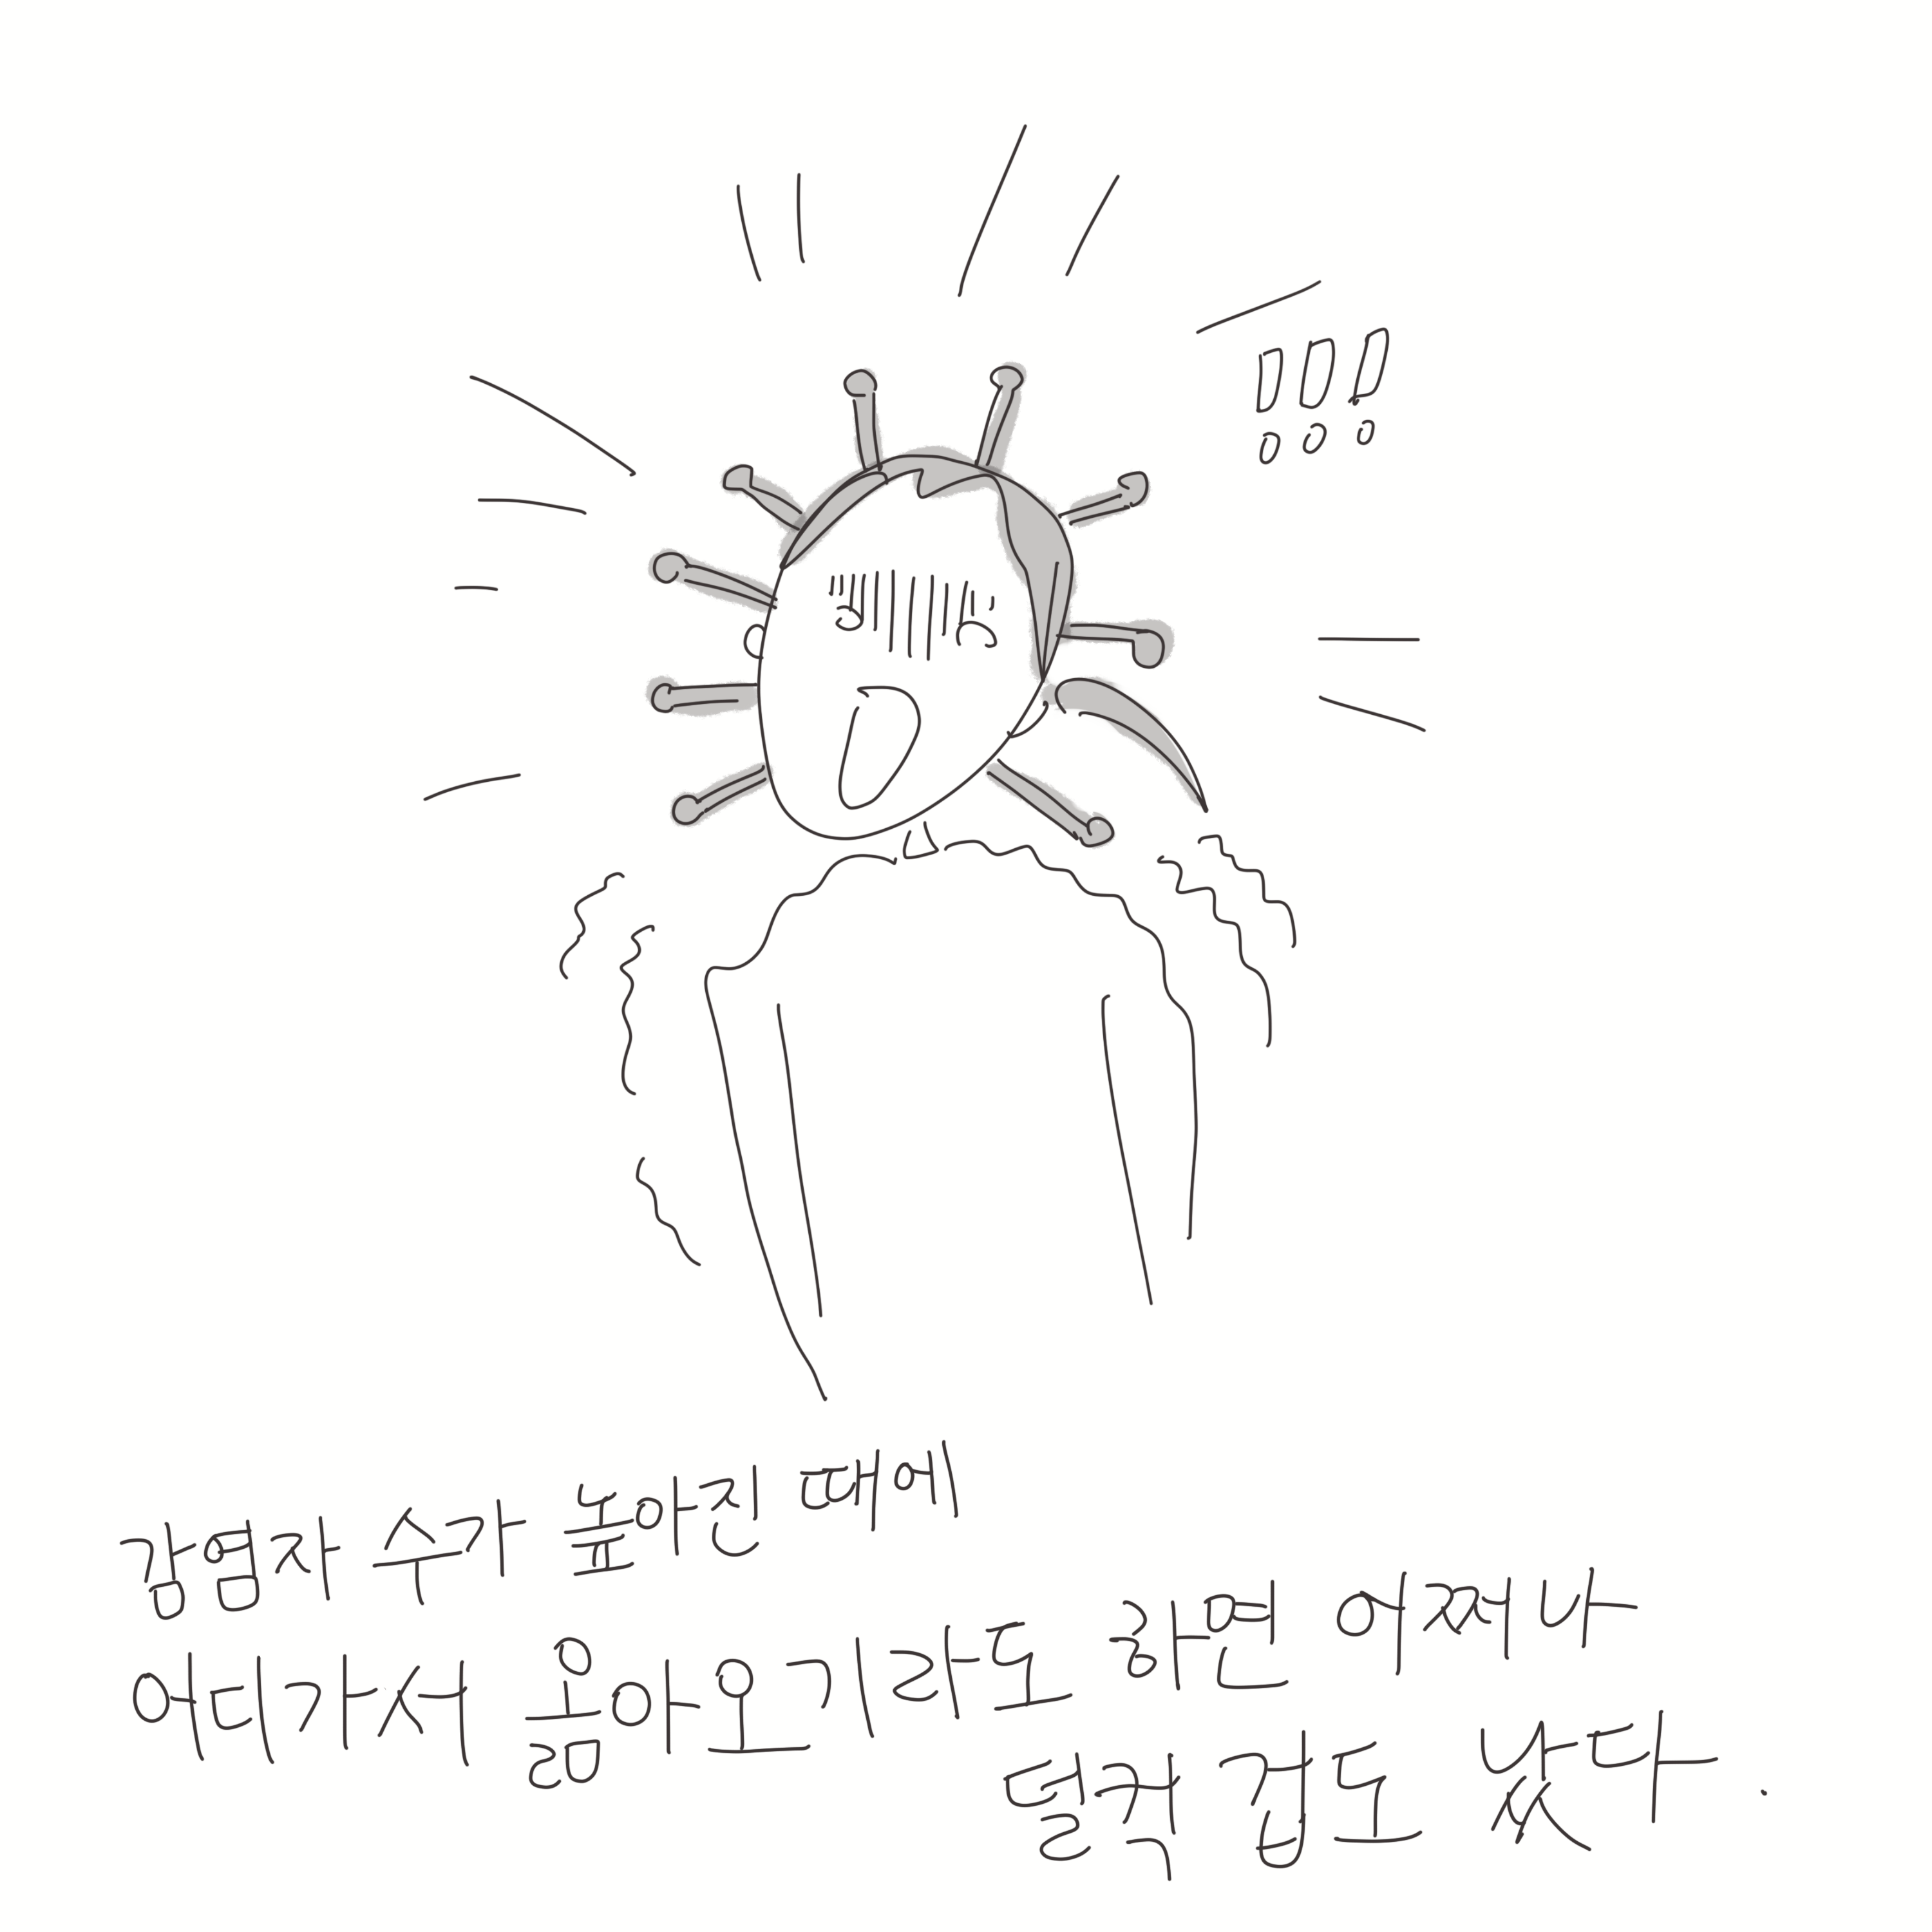 !!!
감염자 수가 높아진 때에
어디가서 옮아오기라도 하면 어쩌나
덜컥 겁도 났다.